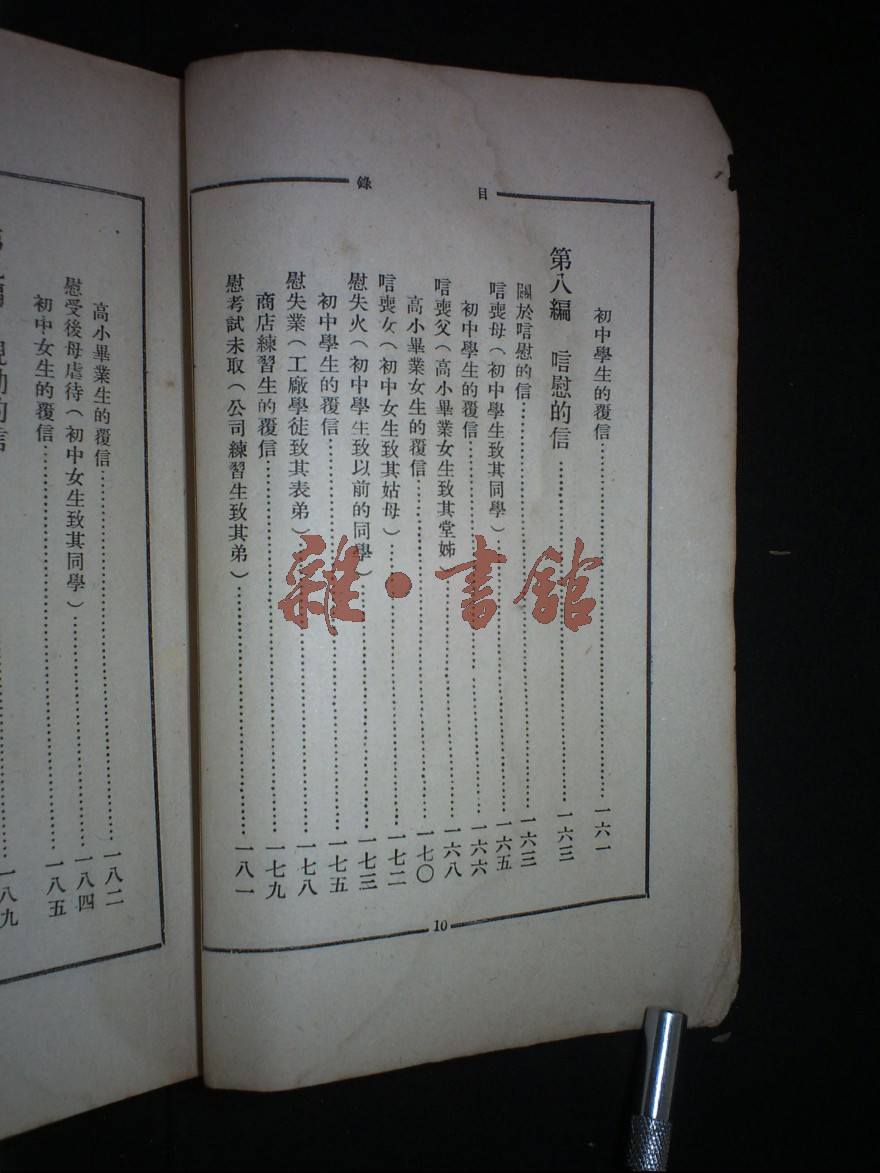 目錄
初中學生的覆信……一六一
第八編 唁慰的信……一六三
關於唁慰的信……一六三
唁喪母（初中學生致其同學）……一六五
初中學生的覆信……一六六
唁喪父（高小畢業女生致其堂姊）……一六八
高小畢業女生的覆信……一七〇
唁喪女（初中女生致其姑母）……一七二
慰失火（初中學生致以前的同學）……一七三
初中學生的覆信……一七五
慰失業（工廠學徒致其表弟）……一七八
商店練習生的覆信……一七九
慰考試未取（公司練習生致其弟）……一八一
10
高小畢業生的覆信……一八二
慰受後母虐待（初中女生致其同學）……一八四
初中女生的覆信……一八五
的信……一八九
雜·書館